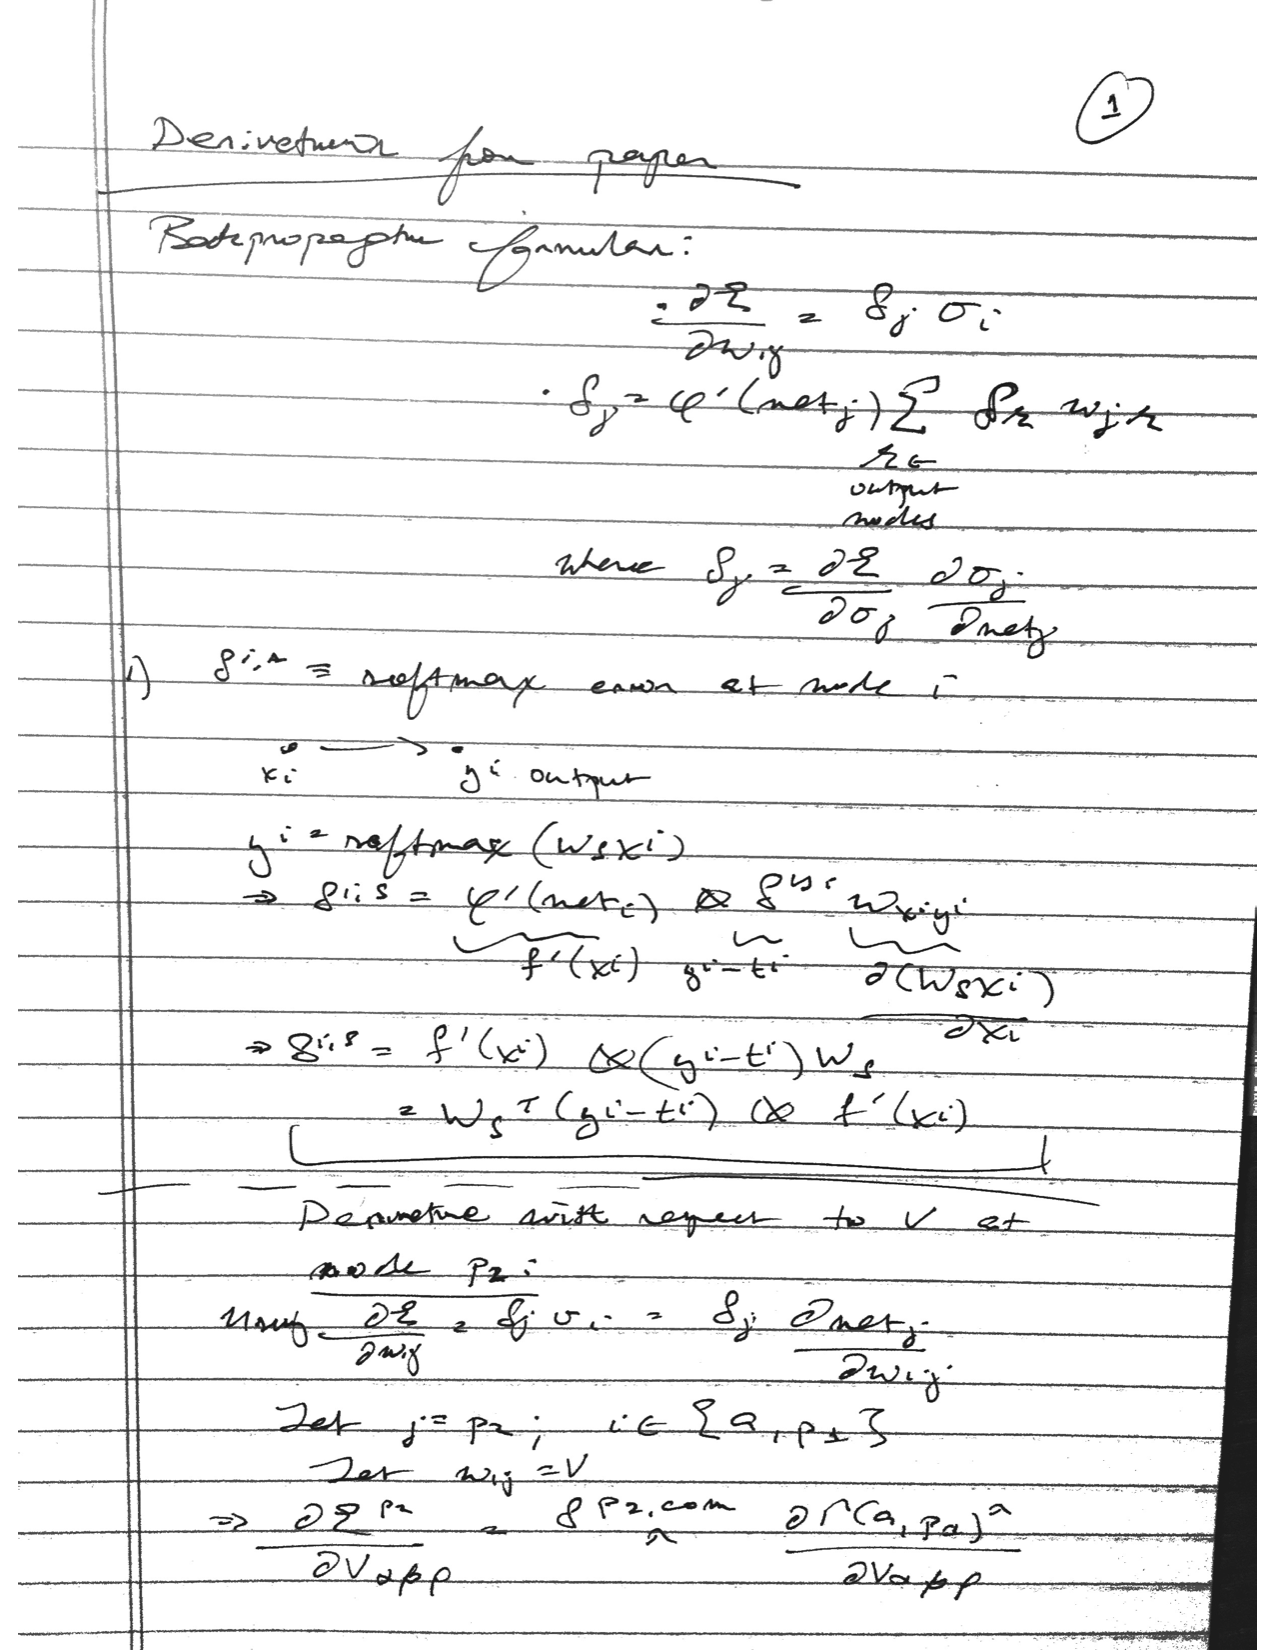 1
Derivations for paper
Backpropagation formulas:
· ∂E/∂w_ij = δ_j σ_i
· δ_j = φ'(net_j) Σ_{k ∈ output nodes} δ_k w_jk
where δ_j = ∂E/∂σ_j ∂σ_j/∂net_j
1) δ^{i,s} ≡ softmax error at node i
x_i → y^i output
y^i = softmax (W_s x_i)
⇒ δ^{i,s} = φ'(net_i) ⊗ δ^{y_i} w_{x_i y^i}
f'(x_i) y^i - t^i ∂(W_s x_i)/∂x_i
⇒ δ^{i,s} = f'(x_i) ⊗ (y^i - t^i) W_s
= W_s^T (y^i - t^i) ⊗ f'(x_i)
Derivative with respect to V at
node p_2:
Using ∂E/∂w_ij = δ_j σ_i = δ_j ∂net_j/∂w_ij
Let j = p_2; i ∈ {a, p_1}
Let w_ij = V
⇒ ∂E^{p_2}/∂V_{αβρ} = δ^{p_2,com} ∂Γ(a, p_a)/∂V_{αβρ}